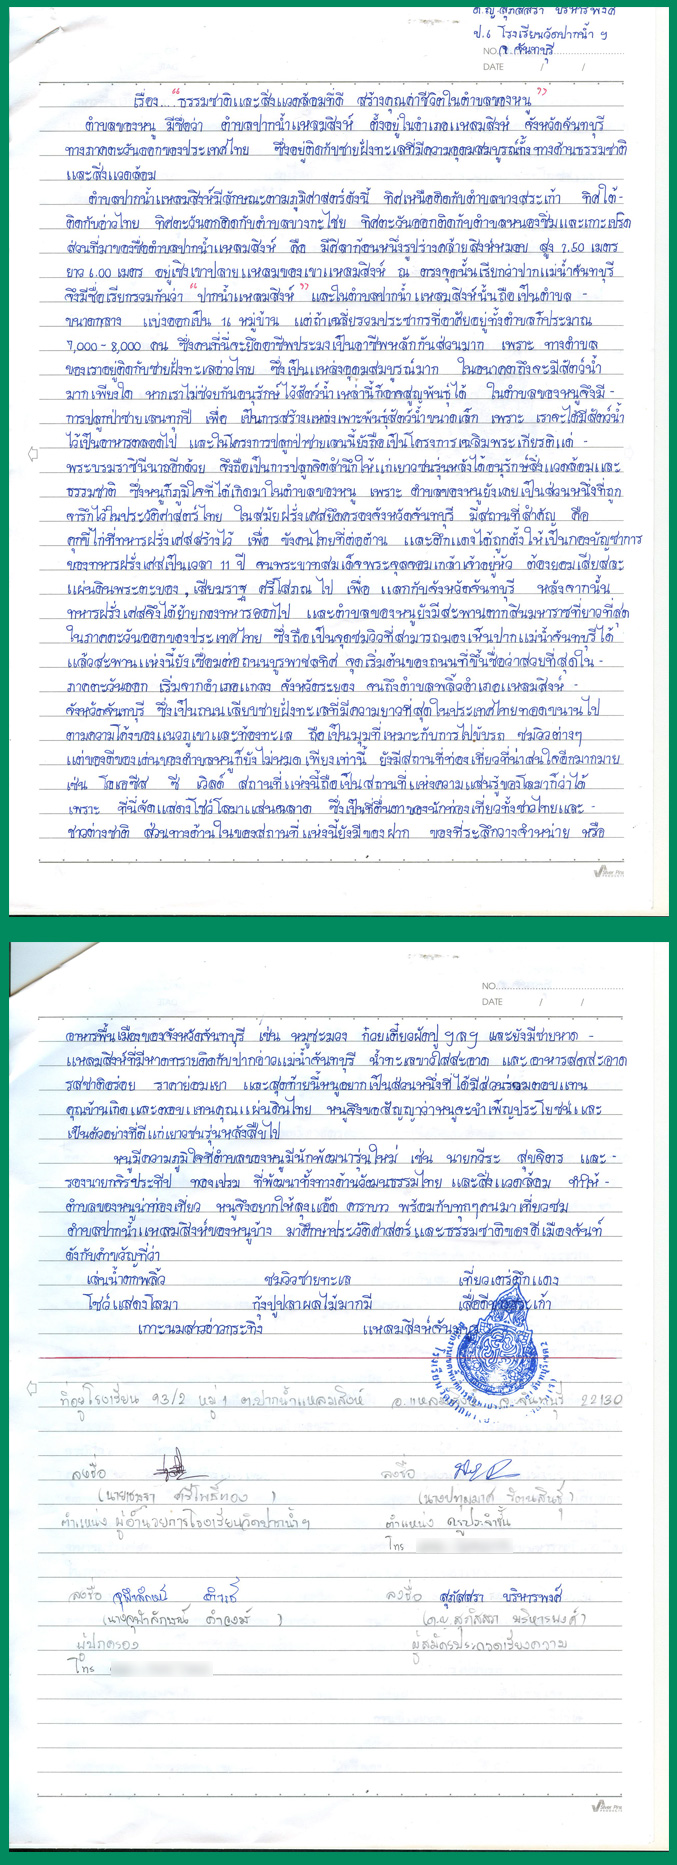 ด.ญ.สุภัสสรา บริหารพงศ์
ป.6 โรงเรียนวัดปากน้ำ ฯ
NO. จ.จันทบุรี
DATE / /
เรื่อง.... "ธรรมชาติและสิ่งแวดล้อมที่ดี สร้างคุณค่าชีวิตในตำบลของหนู"
ตำบลของหนู มีชื่อว่า ตำบลปากน้ำแหลมสิงห์ ตั้งอยู่ในอำเภอแหลมสิงห์ จังหวัดจันทบุรี
ทางภาคตะวันออกของประเทศไทย ซึ่งอยู่ติดกับชายฝั่งทะเลที่มีความอุดมสมบูรณ์ทั้งทางด้านธรรมชาติ
และสิ่งแวดล้อม
ตำบลปากน้ำแหลมสิงห์มีลักษณะตามภูมิศาสตร์ดังนี้ ทิศเหนือติดกับตำบลบางสระเก้า ทิศใต้-
ติดกับอ่าวไทย ทิศตะวันตกติดกับตำบลบางกะไชย ทิศตะวันออกติดกับตำบลหนองชิ่มและเกาะเปริด
ส่วนที่มาของชื่อตำบลปากน้ำแหลมสิงห์ คือ มีศิลาก้อนหนึ่งรูปร่างคล้ายสิงห์หมอบ สูง 2.50 เมตร
ยาว 6.00 เมตร อยู่เชิงเขาปลายแหลมของเขาแหลมสิงห์ ณ ตรงจุดนั้นเรียกว่าปากแม่น้ำจันทบุรี
จึงมีชื่อเรียกรวมกันว่า "ปากน้ำแหลมสิงห์" และในตำบลปากน้ำแหลมสิงห์นั้นถือเป็นตำบล -
ขนาดกลาง แบ่งออกเป็น 16 หมู่บ้าน แต่ถ้าเฉลี่ยรวมประชากรที่อาศัยอยู่ทั้งตำบลก็ประมาณ
7,000 - 8,000 คน ซึ่งคนที่นี่จะยึดอาชีพประมงเป็นอาชีพหลักกันส่วนมาก เพราะ ทางตำบล
ของเราอยู่ติดกับชายฝั่งทะเลอ่าวไทย ซึ่งเป็นแหล่งอุดมสมบูรณ์มาก ในอนาคตถึงจะมีสัตว์น้ำ
มากเพียงใด หากเราไม่ช่วยกันอนุรักษ์ไว้สัตว์น้ำเหล่านี้ก็อาจสูญพันธุ์ได้ ในตำบลของหนูจึงมี -
การปลูกป่าชายเลนทุกปี เพื่อ เป็นการสร้างแหล่งเพาะพันธุ์สัตว์น้ำขนาดเล็ก เพราะ เราจะได้มีสัตว์น้ำ
ไว้เป็นอาหารตลอดไป และในโครงการปลูกป่าชายเลนนี้ยังถือเป็นโครงการเฉลิมพระเกียรติแด่ -
พระบรมราชินีนาถอีกด้วย จึงถือเป็นการปลูกจิตสำนึกให้แก่เยาวชนรุ่นหลังได้อนุรักษ์สิ่งแวดล้อมและ
ธรรมชาติ ซึ่งหนูก็ภูมิใจที่ได้เกิดมาในตำบลของหนู เพราะ ตำบลของหนูยังเคยเป็นส่วนหนึ่งที่ถูก
จารึกไว้ในประวัติศาสตร์ไทย ในสมัยฝรั่งเศสยึดครองจังหวัดจันทบุรี มีสถานที่สำคัญ คือ
คุกขี้ไก่ที่ทหารฝรั่งเศสสร้างไว้ เพื่อ ขังคนไทยที่ต่อต้าน และตึกแดงได้ถูกตั้งให้เป็นกองบัญชาการ
ของทหารฝรั่งเศสเป็นเวลา 11 ปี จนพระบาทสมเด็จพระจุลจอมเกล้าเจ้าอยู่หัว ต้องยอมเสียสละ
แผ่นดินพระตะบอง, เสียมราฐ ศรีโสภณ ไป เพื่อ แลกกับจังหวัดจันทบุรี หลังจากนั้น
ทหารฝรั่งเศสจึงได้ย้ายกองทหารออกไป และตำบลของหนูยังมีสะพานตากสินมหาราชที่ยาวที่สุด
ในภาคตะวันออกของประเทศไทย ซึ่งถือเป็นจุดชมวิวที่สามารถมองเห็นปากแม่น้ำจันทบุรีได้
แล้วสะพานแห่งนี้ยังเชื่อมต่อถนนบูรพาชลทิศ จุดเริ่มต้นของถนนที่ขึ้นชื่อว่าสวยที่สุดใน -
ภาคตะวันออก เริ่มจากอำเภอแกลง จังหวัดระยอง จนถึงตำบลพลิ้วอำเภอแหลมสิงห์ -
จังหวัดจันทบุรี ซึ่งเป็นถนนเลียบชายฝั่งทะเลที่มีความยาวที่สุดในประเทศไทยทอดขนานไป
ตามความโค้งของแนวภูเขาและท้องทะเล ถือเป็นมุมที่เหมาะกับการไปขับรถ ชมวิวต่างๆ
แต่ของดีของเด่นของตำบลหนูก็ยังไม่หมดเพียงเท่านี้ ยังมีสถานที่ท่องเที่ยวที่น่าสนใจอีกมากมาย
เช่น โอเอซีส ซี เวิลด์ สถานที่แห่งนี้ถือเป็นสถานที่แห่งความแสนรู้ของโลมาก็ว่าได้
เพราะ ที่นี่จัดแสดงโชว์โลมาแสนฉลาด ซึ่งเป็นที่ตื่นตาของนักท่องเที่ยวทั้งชาวไทยและ -
ชาวต่างชาติ ส่วนทางด้านในของสถานที่แห่งนี้ยังมีของฝาก ของที่ระลึกวางจำหน่าย หรือ
NO.
DATE / /
อาหารพื้นเมืองของจังหวัดจันทบุรี เช่น หมูชะมวง ก๋วยเตี๋ยวผัดปู ฯลฯ และยังมีชายหาด -
แหลมสิงห์ที่มีหาดทรายติดกับปากอ่าวแม่น้ำจันทบุรี น้ำทะเลขาวใสสะอาด และอาหารสดสะอาด
รสชาติอร่อย ราคาย่อมเยา และสุดท้ายนี้หนูอยากเป็นส่วนหนึ่งที่ได้มีส่วนร่วมตอบแทน
คุณบ้านเกิดและตอบแทนคุณแผ่นดินไทย หนูจึงขอสัญญาว่าหนูจะบำเพ็ญประโยชน์และ
เป็นตัวอย่างที่ดีแก่เยาวชนรุ่นหลังสืบไป
หนูมีความภูมิใจที่ตำบลของหนูมีนักพัฒนารุ่นใหม่ เช่น นายกวีระ สุขจิตร และ -
รองนายกจิรประทีป ทองเปรม ที่พัฒนาทั้งทางด้านวัฒนธรรมไทย และสิ่งแวดล้อม ทำให้ -
ตำบลของหนูน่าท่องเที่ยว หนูจึงอยากให้ลุงแอ๊ด คาราบาว พร้อมกับทุกๆคนมาเที่ยวชม
ตำบลปากน้ำแหลมสิงห์ของหนูบ้าง มาศึกษาประวัติศาสตร์และธรรมชาติของดีเมืองจันท์
ดังกับคำขวัญที่ว่า
เล่นน้ำตกพลิ้ว ชมวิวชายทะเล เที่ยวเตร่ตึกแดง
โชว์แสดงโลมา กุ้งปูปลาผลไม้มากมี เสื่อดีบางสระเก้า
เกาะนมสาวอ่าวกระทิง แหลมสิงห์จันทบุรี
ที่อยู่โรงเรียน 93/2 หมู่ 1 ต.ปากน้ำแหลมสิงห์ อ.แหลมสิงห์ จ.จันทบุรี 22130
ลงชื่อ ลงชื่อ
ศรีโพธิ์ทอง )
ตำแหน่ง ผู้อำนวยการโรงเรียนวัดปากน้ำฯ ตำแหน่ง ครูประจำชั้น
โทร
ลงชื่อ จุฬาลักษณ์ ลงชื่อ สุภัสสรา บริหารพงศ์
(นางจุฬาลักษณ์ ) (ด.ญ. สุภัสสรา บริหารพงศ์)
ผู้ปกครอง ผู้สมัครประกวดเรียงความ
โทร